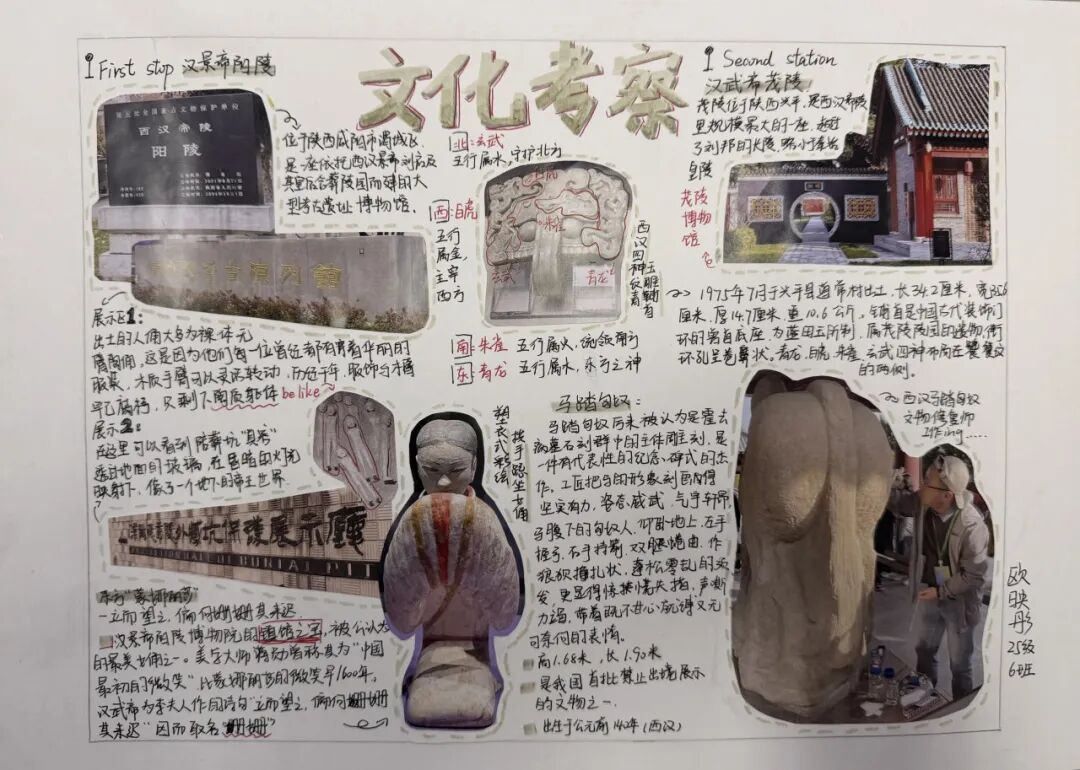 文化考察
First stop 汉景帝阳陵
第五批全国重点文物保护单位
西汉帝陵
阳陵
位于陕西咸阳市渭城区,
是一座依托西汉景帝刘启及
其皇后合葬陵园而建的大
型考古遗址博物馆。
北:玄武
五行属水,守护北方
西:白虎
五行
属金,
主宰
西方
白虎
朱雀
玄武
青龙
西汉四神纹青
玉雕铺首
南:朱雀 五行属火,统领南方
东:青龙 五行属水,东方之神
展示区1:
出土的人俑大多为裸体无
臂陶俑,这是因为他们每一位曾经都有着华丽的
服装,木臂可以灵活转动,历经千年,服饰与木臂
早已腐朽,只剩下陶质躯体 be like~
展示2:
在这里可以看到陪葬坑"真容"
透过地面的玻璃,在昏暗的灯光
映射下,像了一个地下的帝王世界.
外藏坑保护展示厅
BURIAL PIT
东方"蒙娜丽莎"
—立而望之,偏何姗姗其来迟
汉景帝阳陵博物院的镇馆之宝,被公认为
的最美女俑之一。美学大师蒋勋曾称其为"中国
最初的微笑"比蒙娜丽莎的微笑早1600年。
汉武帝为李夫人作的诗句"立而望之,偏何姗姗
其来迟"因而取名"姗姗"
塑衣式彩绘
拱手跽坐女俑
Second station
汉武帝茂陵
茂陵位于陕西兴平,是西汉帝陵
里规模最大的一座,超过
了刘邦的长陵,略小于秦始
皇陵
茂陵
博物
馆
1975年7月于兴平县道常村出土,长34.2厘米,宽35.6
厘米,厚14.7厘米,重10.6公斤。铺首是中国古代装饰门
环的兽首底座,为蓝田玉所制,属茂陵陵园的遗物,衔
环孔呈卷鼻状。青龙、白虎、朱雀、玄武四神布局在饕餮纹
的两侧。
马踏匈奴:
马踏匈奴历来被认为是霍去
病墓石刻群中的主体雕刻,是
一件有代表性的纪念碑式的杰
作。工匠把马的形象刻画得
坚实有力,姿态威武,气宇轩昂,
马腹下的匈奴人,仰卧地上,左手
握弓,右手持箭,双腿蜷曲,作
狠狈挣扎状。蓬松零乱的须
发,更显得惊慌失措,声嘶
力竭,带着既不甘心就缚又无
可奈何的表情。
高1.68米,长1.90米
是我国首批禁止出境展示
的文物之一。
出生于公元前140年(西汉)
西汉马踏匈奴
文物修复师
ing......
欧
映
彤
25级
6班